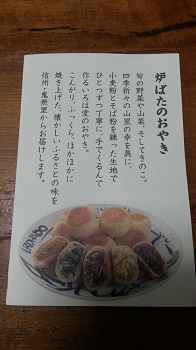 炉ばたのおやき
旬の野菜や山菜、そしてきのこ。
四季折々の山里の幸を具に、
小麦粉とそば粉を練った生地で
ひとつずつ丁寧に、手でくるんで
作るいろは堂のおやき。
こんがり、ふっくら、ほかほかに
焼き上げた、懐かしいふるさとの味を
信州・鬼無里からお届けします。
IROHADO